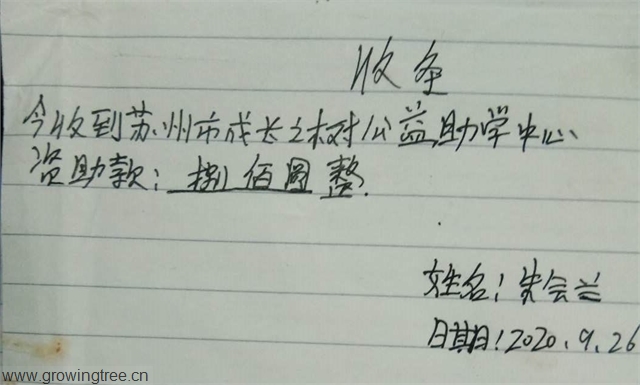 收条
今收到苏州市成长之树公益助学中心
资助款：捌佰圆整.
姓名：朱会兰
日期：2020.9.26
www.growingtree.cn